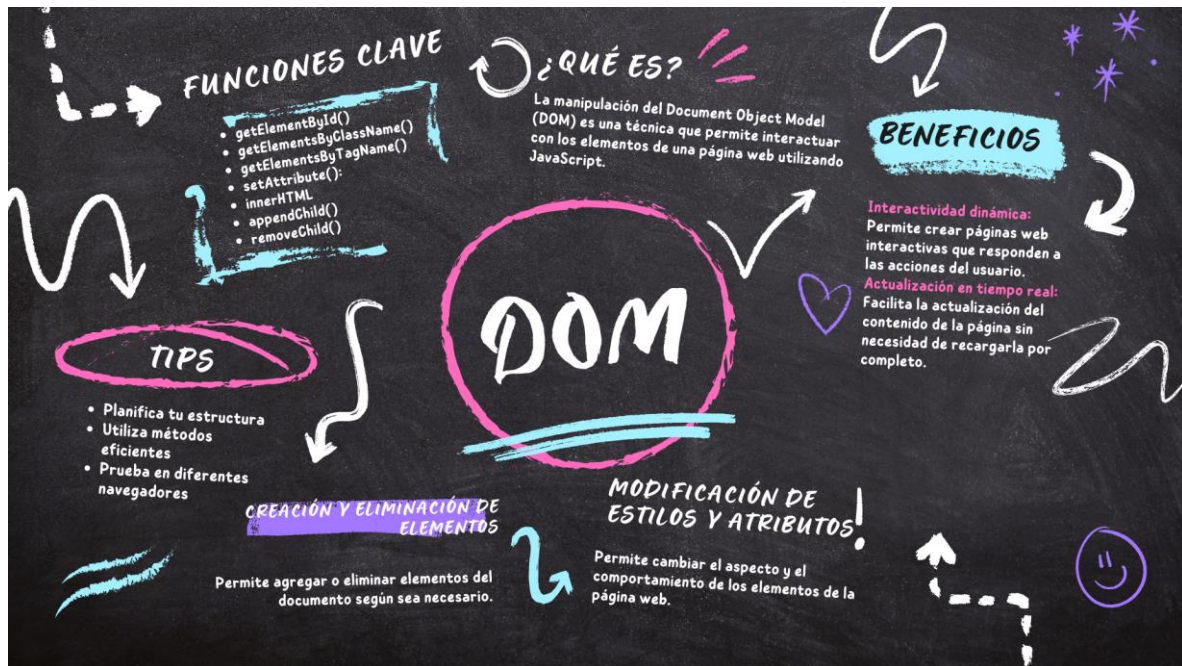 FUNCIONES CLAVE
• getElementById()
• getElementsByClassName()
• getElementsByTagName()
• setAttribute():
• innerHTML
• appendChild()
• removeChild()
¿QUÉ ES?
La manipulación del Document Object Model
(DOM) es una técnica que permite interactuar
con los elementos de una página web utilizando
JavaScript.
BENEFICIOS
Interactividad dinámica:
Permite crear páginas web
interactivas que responden a
las acciones del usuario.
Actualización en tiempo real:
Facilita la actualización del
contenido de la página sin
necesidad de recargarla por
completo.
DOM
TIPS
• Planifica tu estructura
• Utiliza métodos
eficientes
• Prueba en diferentes
navegadores
CREACIÓN Y ELIMINACIÓN DE
ELEMENTOS
Permite agregar o eliminar elementos del
documento según sea necesario.
MODIFICACIÓN DE
ESTILOS Y ATRIBUTOS!
Permite cambiar el aspecto y el
comportamiento de los elementos de la
página web.